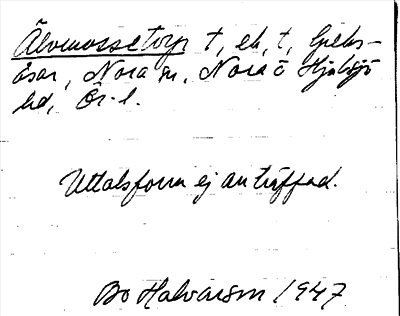 Älvmossetorp t, eh, t, Gräs-
åsar, Nora sn, Nora o Hjulsjö
hd, Ör. l.
Uttalsform ej anträffad.
Bo Halvarson 1947